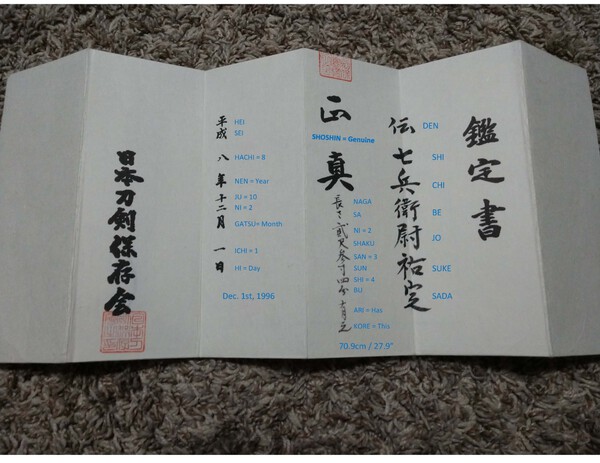 鑑定書
伝 七兵衛尉祐定
DEN
SHI
CHI
BE
JO
SUKE
SADA
正真
SHOSHIN = Genuine
長さ貳尺参寸四分有之
NAGA
SA
NI = 2
SHAKU
SAN = 3
SUN
SHI = 4
BU
ARI = Has
KORE = This
70.9cm / 27.9"
平成八年十二月一日
HEI
SEI
HACHI = 8
NEN = Year
JU = 10
NI = 2
GATSU= Month
ICHI = 1
HI = Day
Dec. 1st, 1996
日本刀剣保存会